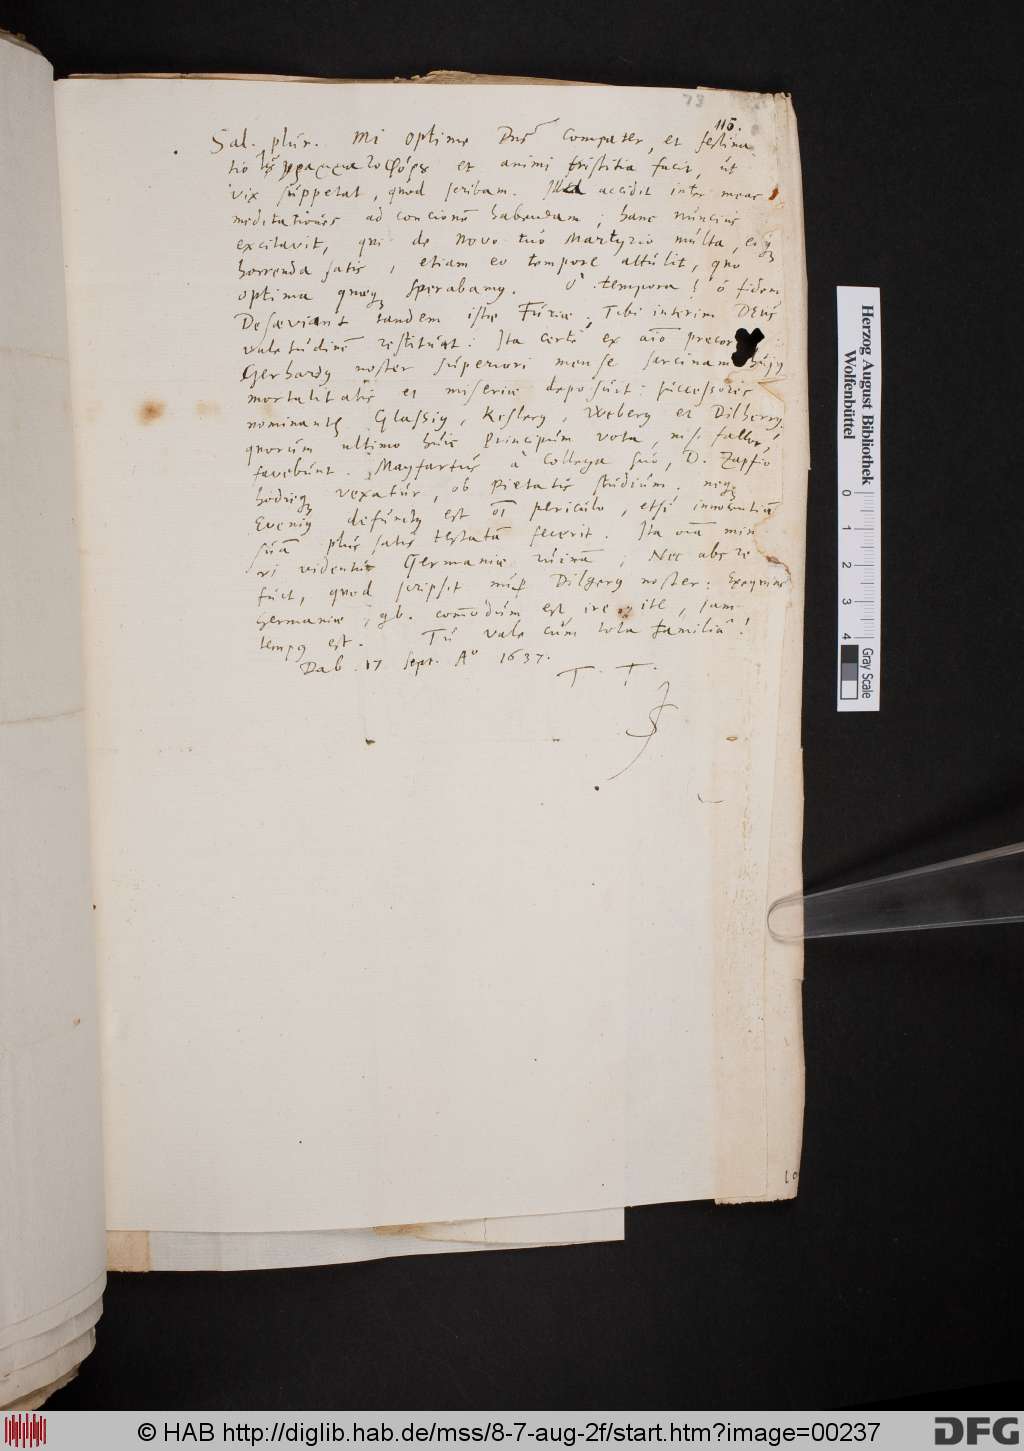 73
116.
Sal. plur. Mi optime Dne Compater, et festina
tio τȣ̃ γραμματοφόρȣ et animi tristitia facit, ut
vix suppetat, quod scribam. accidit inter meas
meditationes ad concionē habendam; hanc nuncius
excitavit, qui de novo tuo Martyrio multa, eaq3
horrenda satis, etiam eo tempore attulit, quo
optima quæq3 sperabamq. O tempora! ô fidem
Desæviant tandem istæ Furiæ, Tibi interim DEus
valetudinē restituat: Ita certè ex aīo precor
Gerhardq noster superiori mense sarcinam hujq
mortalitatis et miseriæ deposuit: successores
nominantr Glassiq, Keslerq, Weberq et Dilherrq
quorum ultimo huic Principum vota, nisi fallor,
favebunt. Mayfartus à Collega suo, D. Zapfio
hodieq3 vexatur, ob pietatis studium. neq3
Eveniq defunctq est oī periculo, etsi innocentiā
suā plus satis testatā fecerit. Ita oīa min
ri videntur Germaniæ ruinā; Nec abs re
fuit, quod scripsit nup Dilgerq noster: Exeqviæ
Germaniæ, qb. com̄odum est ire, ite, jam
tempq est. Tu vale cum tota familiâ!
Dab. 17 Sept. Aº 1637.
T. T.
Herzog August Bibliothek
Wolfenbüttel
0 1 2 3 4
Gray Scale
© HAB http://diglib.hab.de/mss/8-7-aug-2f/start.htm?image=00237
DFG